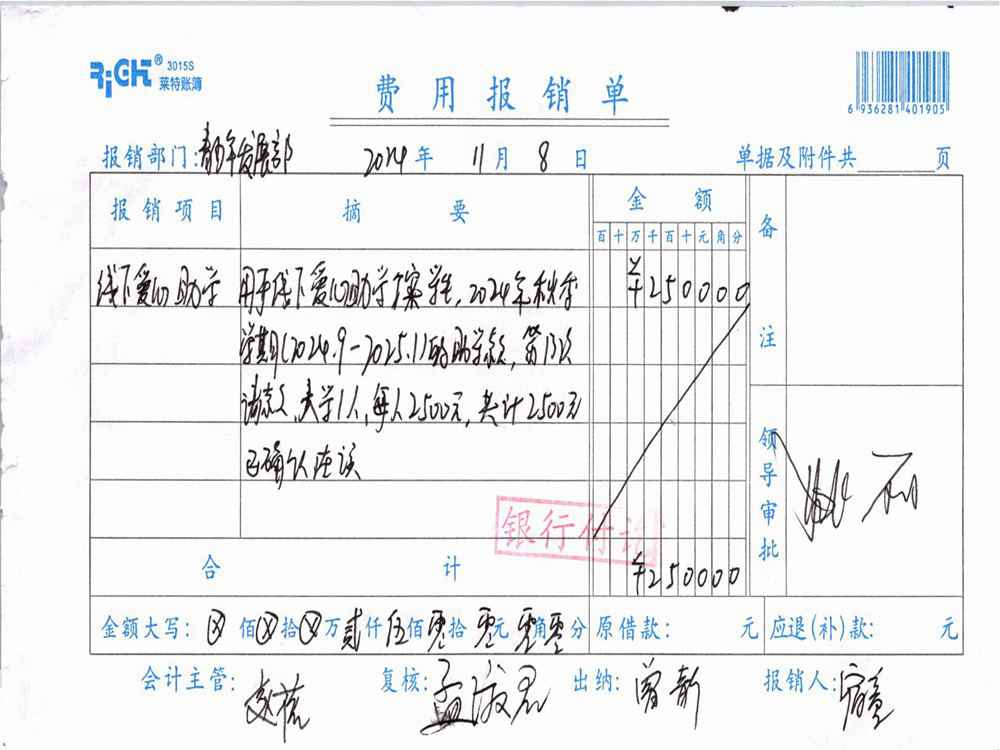 RiCH® 3015S
莱特账簿
费用报销单
6 936281 401905
报销部门:青少年发展部 2024年 11月 8日 单据及附件共 页
报销项目 摘要 金额 备注
百十万千百十元角分
线下爱心助学 用于线下爱心助学 学生,2024年秋季 ¥250000
学期(2024.9-2025.1)的助学款,第13次
请款,大学1人,每人2500元,共计2500元
已确认在读
银行付讫
领导审批
合计 ¥250000
金额大写:ⓧ佰ⓧ拾ⓧ万贰仟伍佰零拾零元零角零分 原借款: 元 应退(补)款: 元
会计主管: 复核:孟淑君 出纳:曾新 报销人: